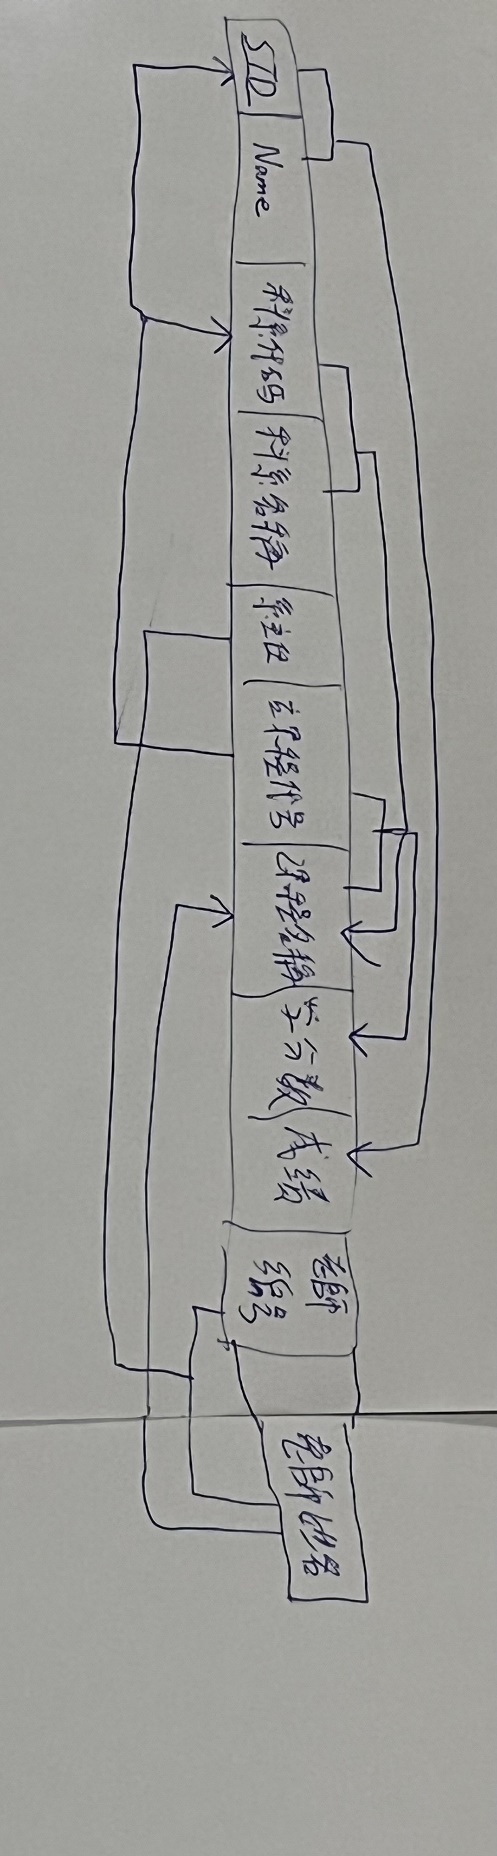 STD
Name
科系代码
科系名称
系主任
课程代号
课程名称
学分数
成绩
老師
编号
老師姓名